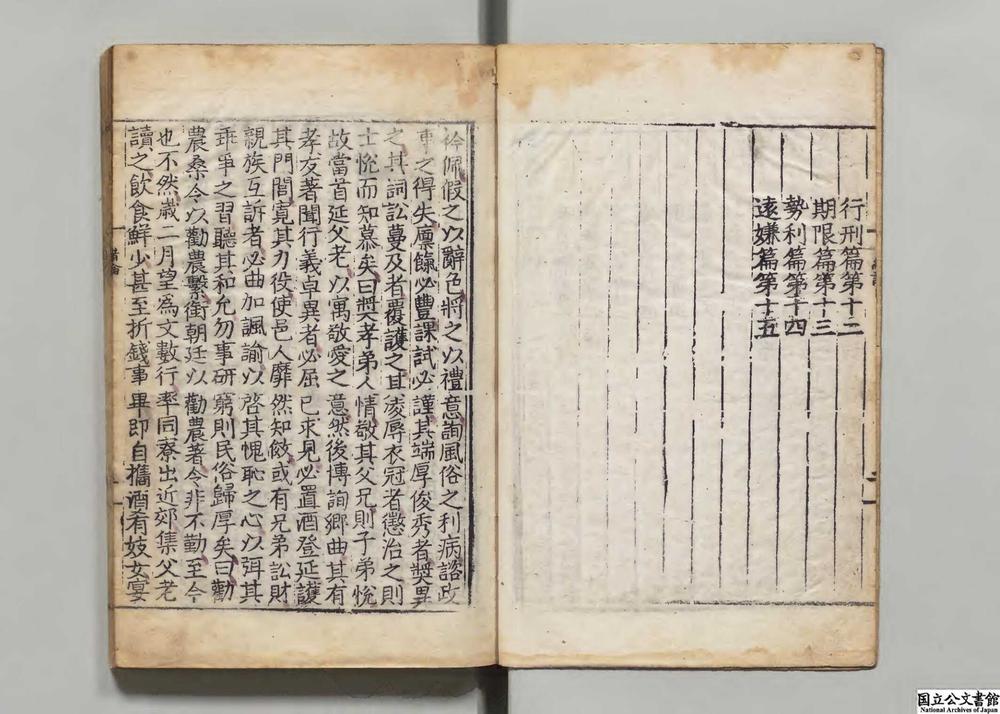 行刑篇第十二
期限篇第十三
勢利篇第十四
遠嫌篇第十五
衿佩假之以辭色將之以禮意詢風俗之利病諮政
事之得失廪餼必豐課試必謹其端厚俊秀者奬異
之其詞訟蔓及者覆護之其凌辱衣冠者懲治之則
士悅而知慕矣曰奬孝弟人情敬其父兄則子弟悅
故當首延父老以寓敬愛之意然後博詢鄉曲其有
孝友著聞行義卓異者必屈己求見必置酒登延護
其門閭寛其力役使邑人靡然知敬或有兄弟訟財
親族互訴者必曲加諷諭以啓其愧恥之心以弭其
乖爭之習聽其和允勿事研窮則民俗歸厚矣曰勸
農桑令以勸農繫銜朝廷以勸農著令非不勤至今
也不然歲二月望爲文數行率同寮出近郊集父老
讀之飲食鮮少甚至折錢事畢即自攜酒肴妓女宴
国立公文書館
National Archives of Japan